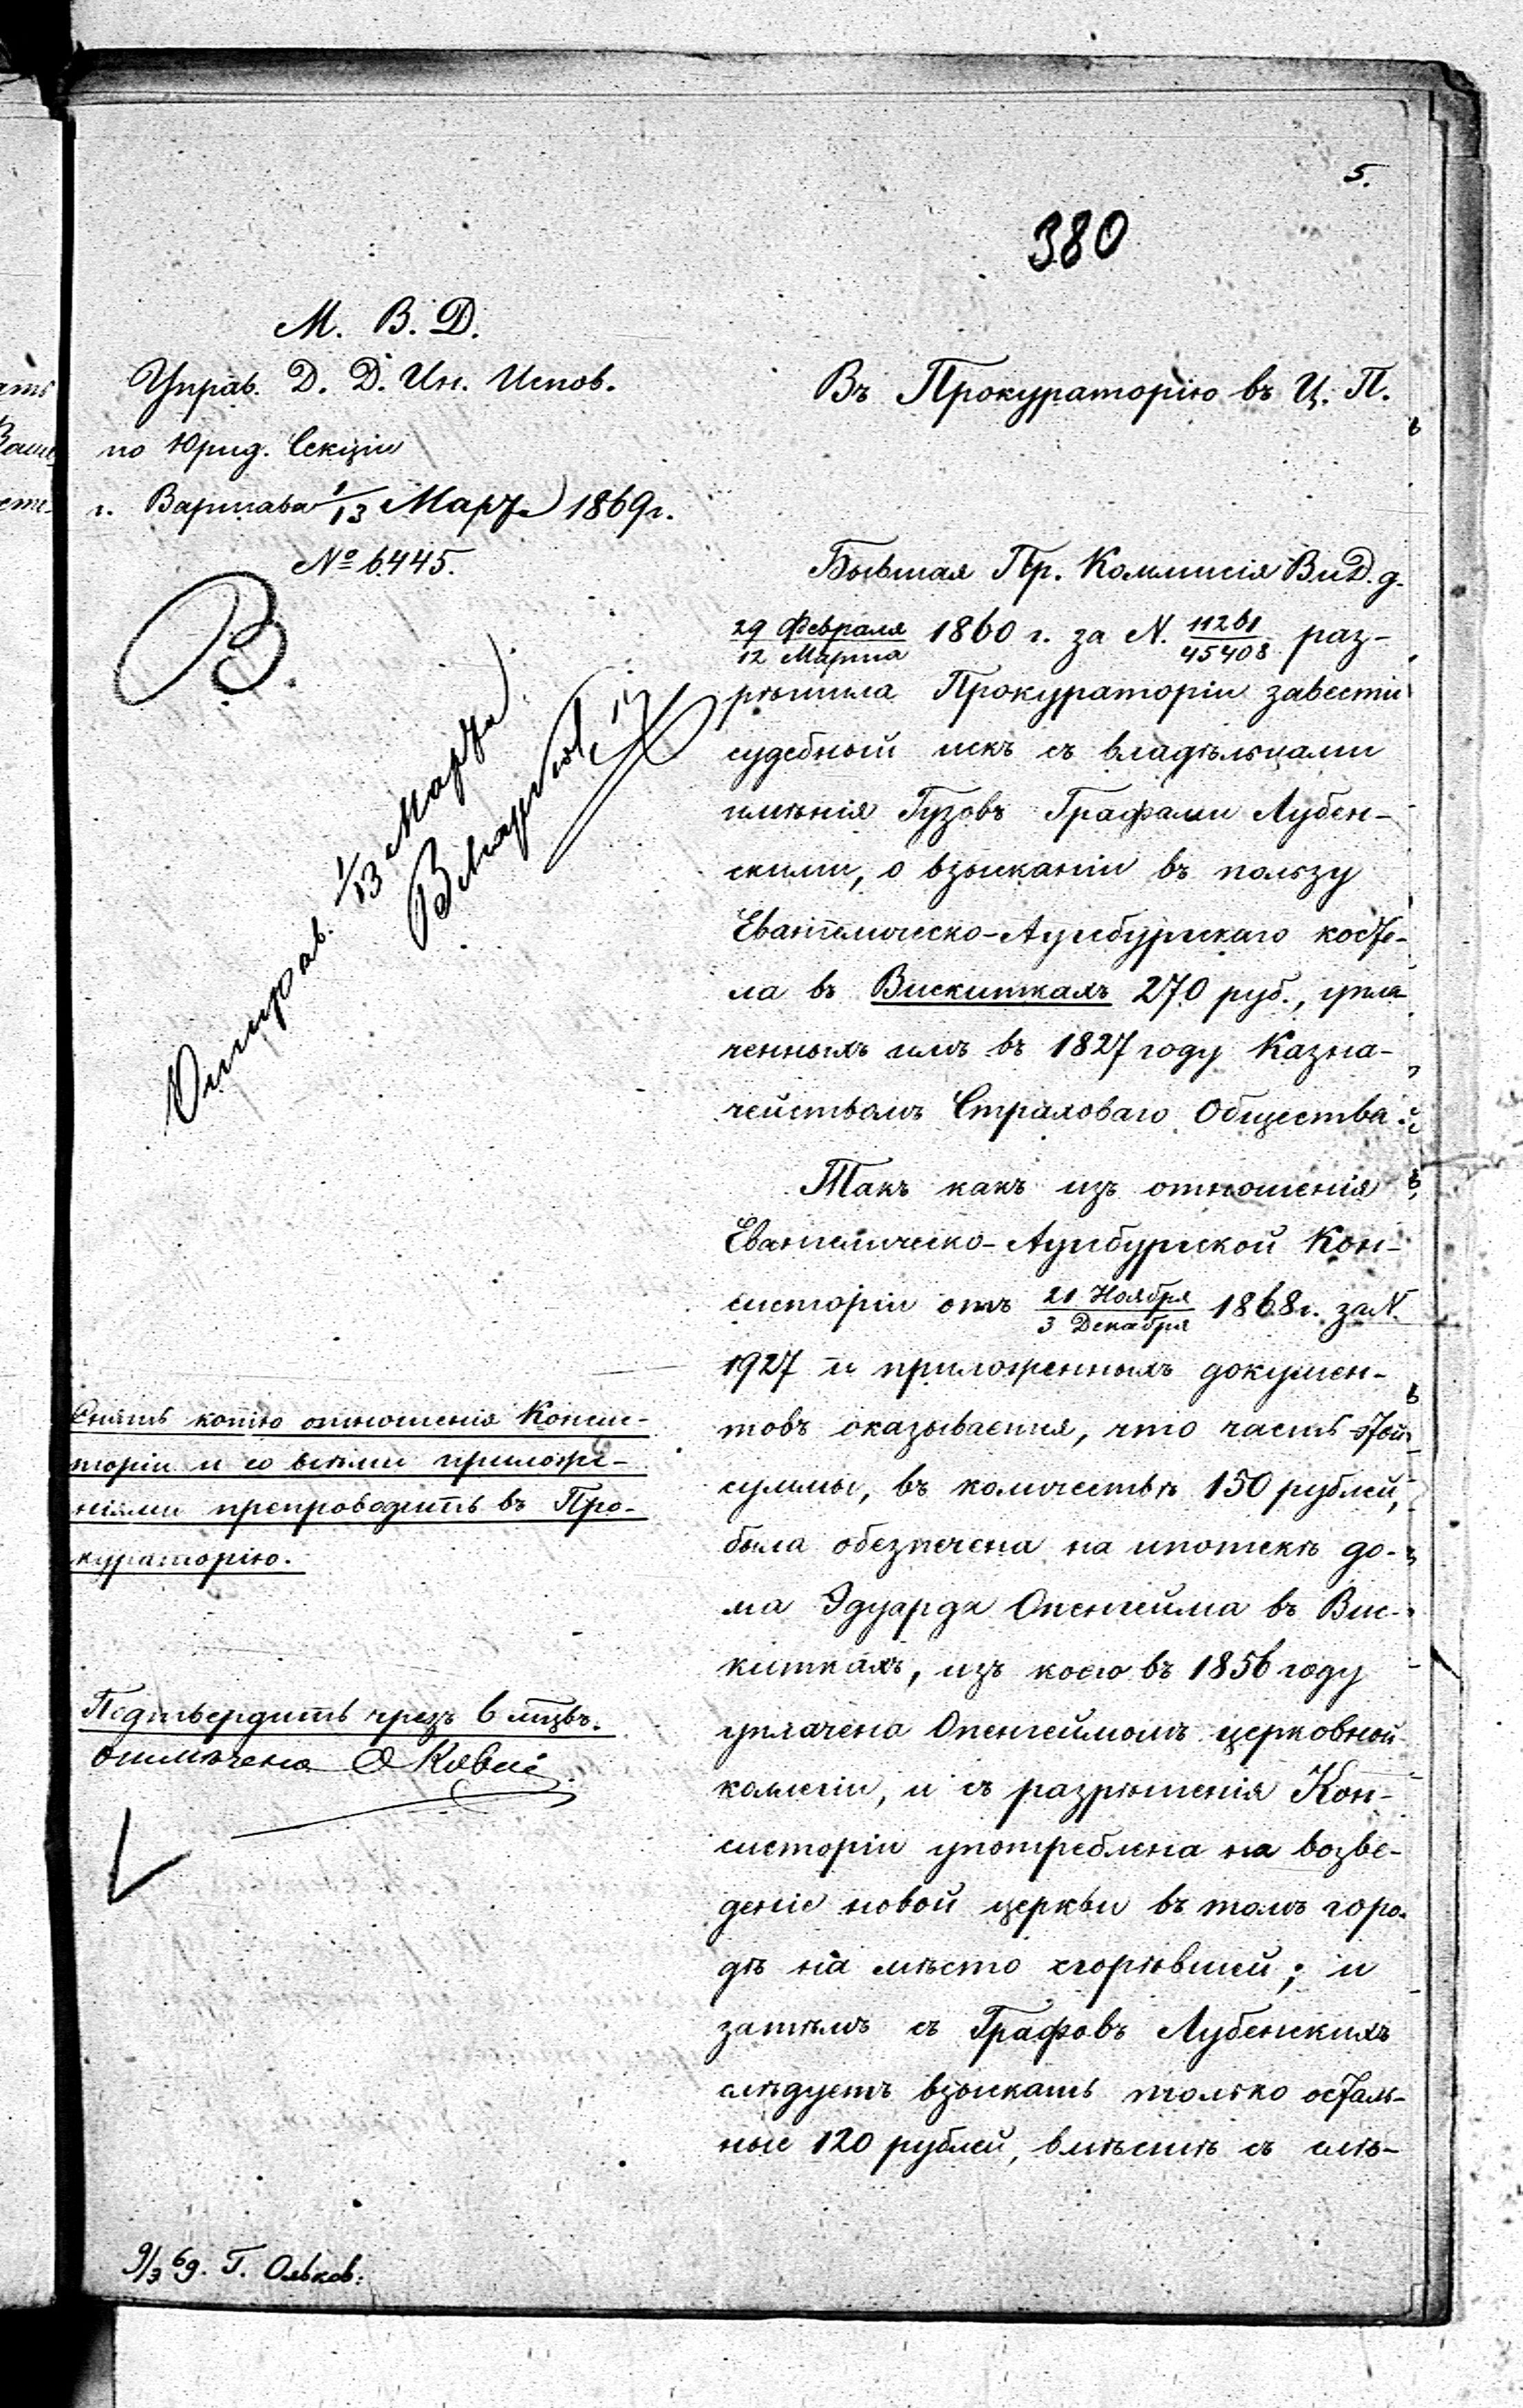 5.
380
М. В. Д.
Управ. Д. Д. Ин. Испов.
по Юрид. Секціи
г. Варшава 1/13 Марта 1869 г.
№ 6445.
В.
Отправ. 1/13 Марта
Въ Прокураторію въ Ц. П.
Бывшая Пр. Коммисія В и Д. д.
29 Февраля/12 Марта 1860 г. за N. 11261/45408 раз-
рѣшила Прокураторіи завести
судебный искъ съ владѣльцами
имѣнія Гузовъ Графами Лубен-
скими, о взысканіи въ пользу
Евангелическо-Аугсбургскаго косте-
ла въ Вискиткахъ 270 руб., упла
ченныхъ имъ въ 1827 году Казна-
чействомъ Страховаго Общества.
Такъ какъ изъ отношенія
Евангелическо-Аугсбургской Кон-
систоріи отъ 21 Ноября/3 Декабря 1868 г. за N.
1927 и приложенныхъ докумен-
товъ оказывается, что часть этой
суммы, въ количествѣ 150 рублей,
была обезпечена на ипотекѣ до-
ма Эдуарда Опенгейма въ Вис-
киткахъ, изъ коего въ 1856 году
уплачена Опенгеймомъ церковной
коллегіи, и съ разрѣшенія Кон-
систоріи употреблена на возве-
деніе новой церкви въ томъ горо-
дѣ на мѣсто сгорѣвшей; и
затѣмъ съ Графовъ Лубенскихъ
слѣдуетъ взыскать только осталь-
ные 120 рублей, вмѣстѣ съ слѣ-
Снять копію отношенія Консис-
торіи и со всѣми приложе-
ніями препроводить въ Про-
кураторію.
Подтвердить чрезъ 6 мцвъ.
отмѣчено
9/3 69. Г. Ольков: